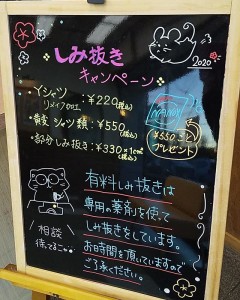 2020
しみ抜き
キャンペーン
Yシャツ
リメイク加工 : ¥220(税込)
・シャツ類 : ¥550(税込)
・部分しみ抜き : ¥330 1cm²
(税込)
¥550
プレゼント
有料しみ抜きは
専用の薬剤を使って
しみ抜きをしています。
お時間を頂いていますので
ご了承ください。
相談
待ってるニャ